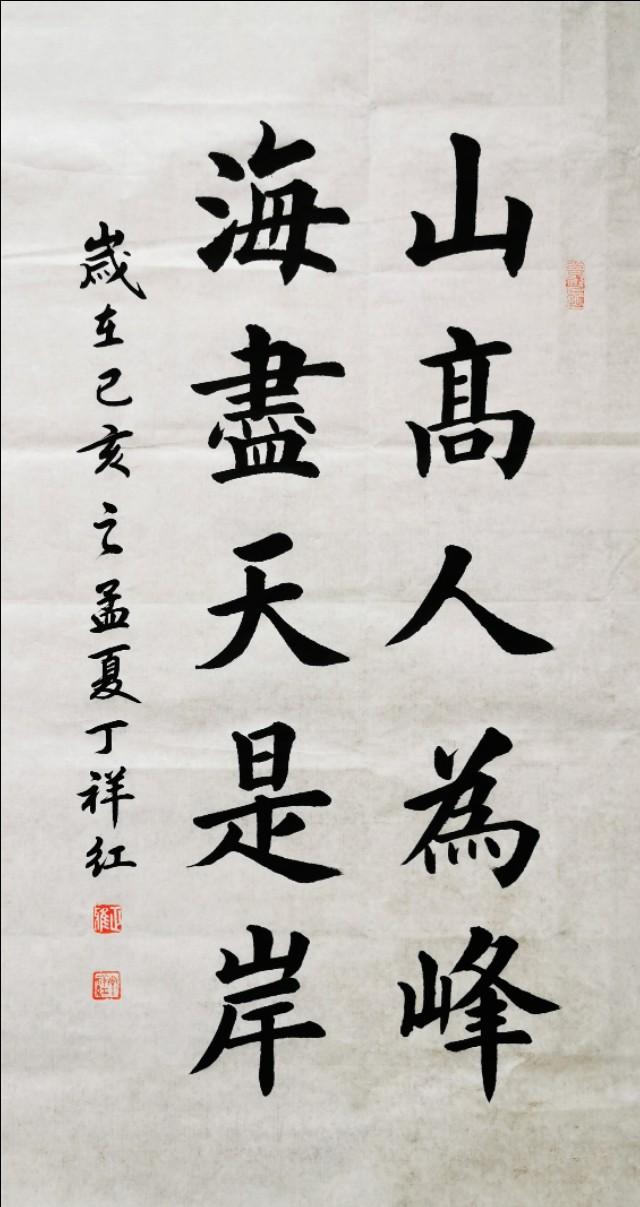 山髙人為峰
海盡天是岸
歲在己亥之孟夏丁祥红